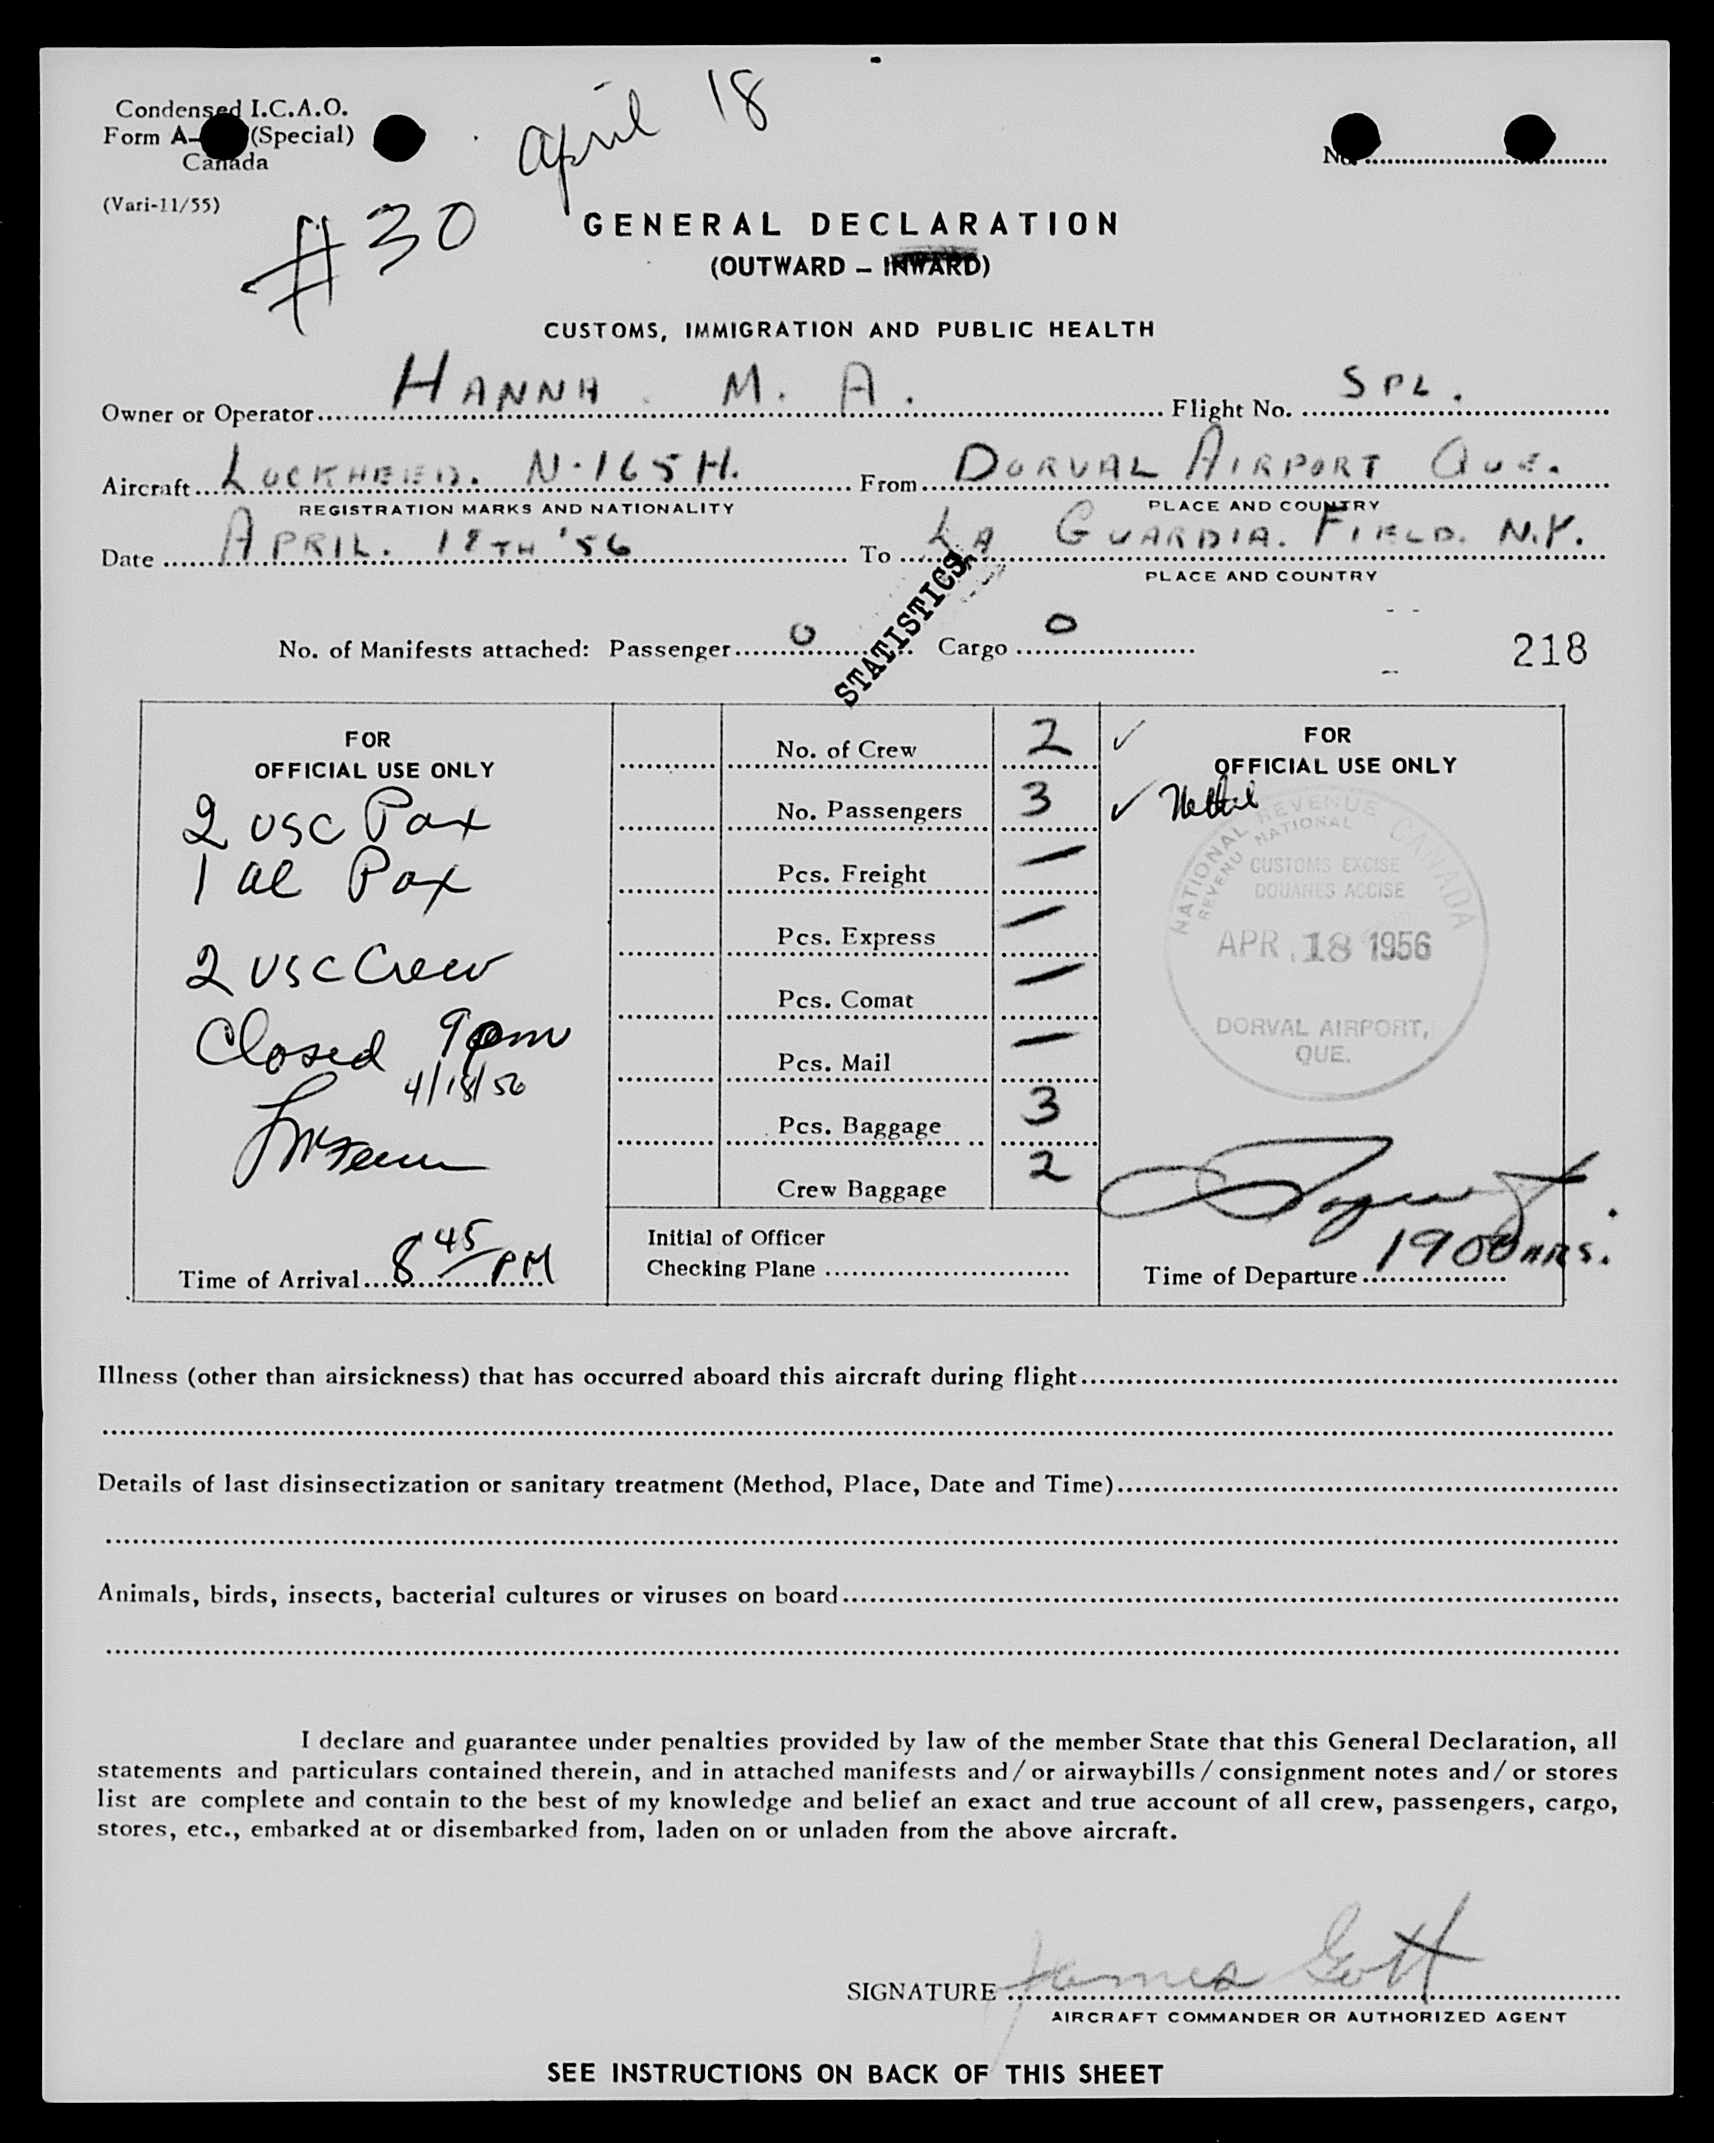 Condensed I.C.A.O.
Form A- (Special)
Canada
(Vari-11/55)
April 18
#30
No.
GENERAL DECLARATION
(OUTWARD – INWARD)
CUSTOMS, IMMIGRATION AND PUBLIC HEALTH
Owner or Operator HANNA M. A. Flight No. SPL.
Aircraft LOCKHEED. N-165H. From DORVAL AIRPORT QUE.
REGISTRATION MARKS AND NATIONALITY PLACE AND COUNTRY
Date APRIL. 18TH '56 To LA GUARDIA. FIELD. N.Y.
PLACE AND COUNTRY
STATISTICS
No. of Manifests attached: Passenger 0 Cargo 0
218
FOR
OFFICIAL USE ONLY
2 USC Pax
1 al Pax
2 USC Crew
Closed 9pm
4/18/56
Time of Arrival 8 45 PM
No. of Crew 2 ✓
No. Passengers 3 ✓
Pcs. Freight —
Pcs. Express —
Pcs. Comat —
Pcs. Mail —
Pcs. Baggage 3
Crew Baggage 2
Initial of Officer
Checking Plane
FOR
OFFICIAL USE ONLY
NATIONAL REVENUE CANADA
REVENU NATIONAL
CUSTOMS EXCISE
DOUANES ACCISE
APR. 18 1956
DORVAL AIRPORT,
QUE.
Time of Departure 1900 HRS.
Illness (other than airsickness) that has occurred aboard this aircraft during flight
Details of last disinsectization or sanitary treatment (Method, Place, Date and Time)
Animals, birds, insects, bacterial cultures or viruses on board
I declare and guarantee under penalties provided by law of the member State that this General Declaration, all
statements and particulars contained therein, and in attached manifests and/or airwaybills/consignment notes and/or stores
list are complete and contain to the best of my knowledge and belief an exact and true account of all crew, passengers, cargo,
stores, etc., embarked at or disembarked from, laden on or unladen from the above aircraft.
SIGNATURE James Gott
AIRCRAFT COMMANDER OR AUTHORIZED AGENT
SEE INSTRUCTIONS ON BACK OF THIS SHEET